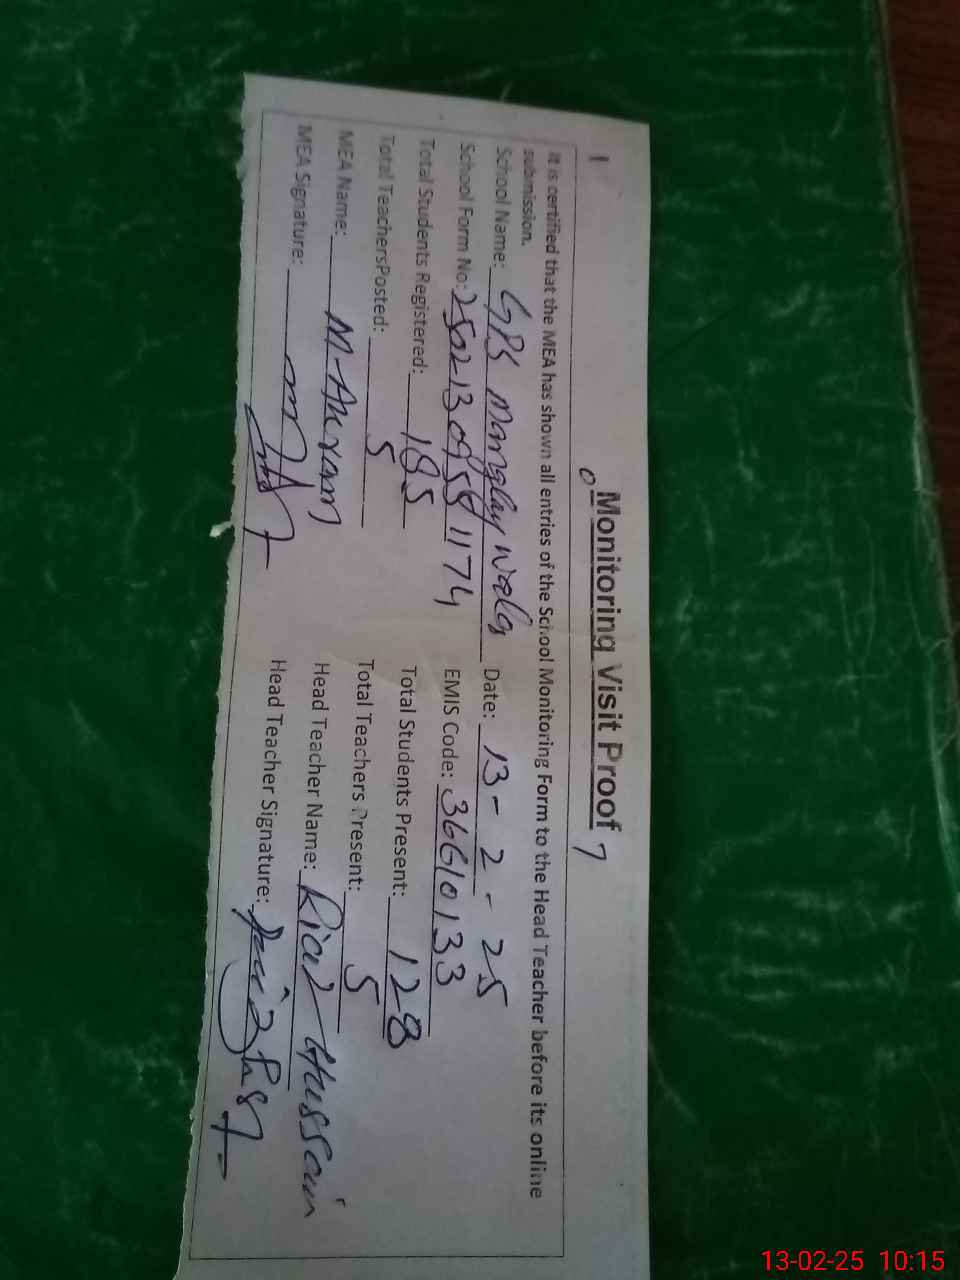 Monitoring Visit Proof
It is certified that the MEA has shown all entries of the School Monitoring Form to the Head Teacher before its online
submission.
School Name: GPS Manglay Wala Date: 13-2-25
School Form No: EMIS Code: 36610133
Total Students Registered: 185 Total Students Present: 128
Total TeachersPosted: 5 Total Teachers Present: 5
MEA Name: M-Akram Head Teacher Name: Riaz Hussain
MEA Signature: Head Teacher Signature:
13-02-25 10:15